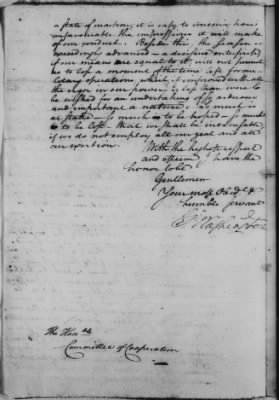 a state of inaction, it is easy to conceive how
unfavorable the impressions it will make
of our conduct. Besides this, the season is
exceedingly advanced—a decisive enterprise
if our means are equal to it, will not permit
us to lose a moment of the time left for
operation, which, if improved with all
the vigor in our power, is less than could
to be wished for an undertaking of so arduous
and important a nature. So much is
at stake—so much to be hoped—so much
to be lost—that we shall be inexcusable
if we do not employ all our zeal and all
our exertion.
With the highest respect
and esteem I have the
honor to be
Gentlemen
Your most Obedt
humble servant
Go: Washington
The Honble
Committee of Cooperation